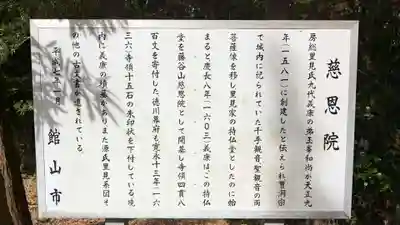 慈恩院
房総里見氏九代義康の弟玉峯和尚が天正九
年(一五八一)に創建したと伝えられ曹洞宗
で城内に祀られていた千手観音聖観音の両
菩薩像を移し里見家の持仏堂としたのに始
まると慶長八年(一六〇三)義康はこの持仏
堂を藤谷山慈恩院として開基し寺領四貫八
百文を寄付した徳川幕府も寛永十三年(一六
三六)寺領十五石の朱印状を下付している境
内に義康の墳墓がありまた源氏里見系図そ
の他の古文書が遺されている。
平成七年一月
館山市